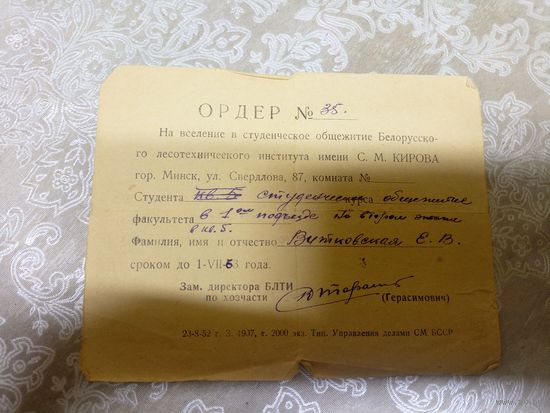 ОРДЕР № 35.
На вселение в студенческое общежитие Белорусско-
го лесотехнического института имени С. М. КИРОВА
гор. Минск, ул. Свердлова, 87, комната №
Студента кв 5 студенческое курса общежитие
факультета в 1ом подъезде на втором этаже
в кв. 5.
Фамилия, имя и отчество Витковская Е. В.
сроком до 1-VII-53 года.
Зам. директора БЛТИ
по хозчасти (Герасимович)
23-8-52 г. З. 1907, т. 2000 экз. Тип. Управления делами СМ БССР